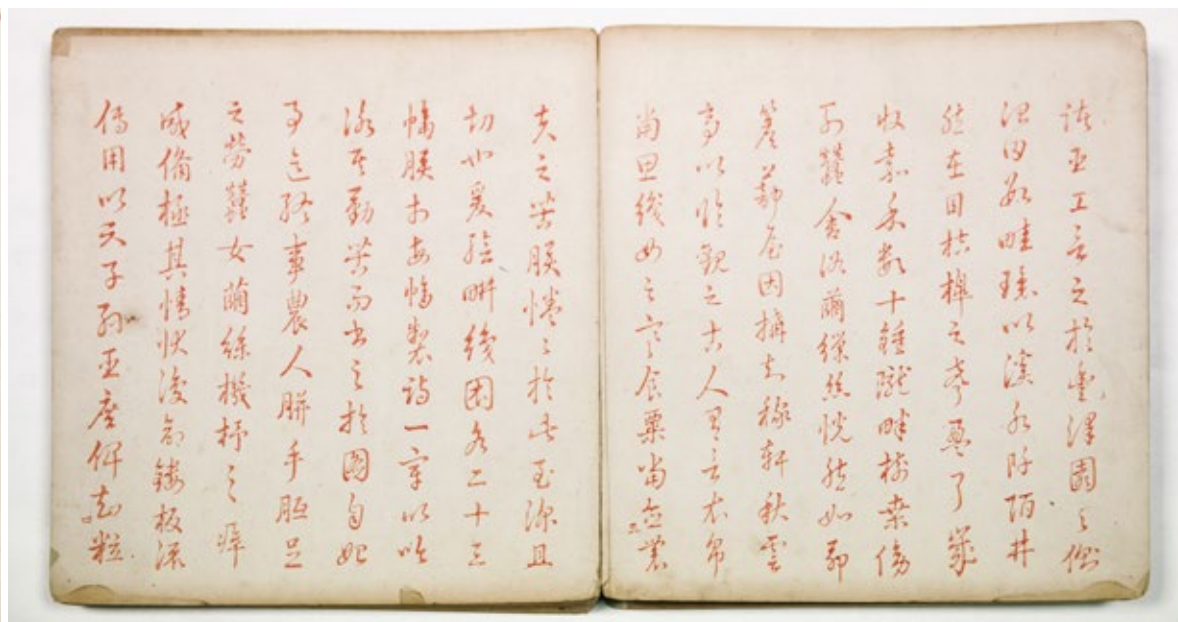 諸臣工言之於豐澤園之側
治田數畦環以溪水阡陌井
然在目桔槔之聲盈耳歲
收嘉禾數十鍾隴畔樹桒傍
列蠶舍浴繭繅絲恍然如茆
簷蔀屋因搆知稼軒秋雲
亭以臨觀之古人有言衣帛
當思織女之寒食粟當念農
夫之苦朕惓〻於此至深且
切也爰繪畊織圖各二十三
幅朕於每幅製詩一章以吟
詠其勤苦而書之於圖自始
事迄終事農人胼手胝足
之勞蠶女繭絲機杼之瘁
咸備極其情狀復命鏤板流
傳用以示子孫臣庶俾知粒